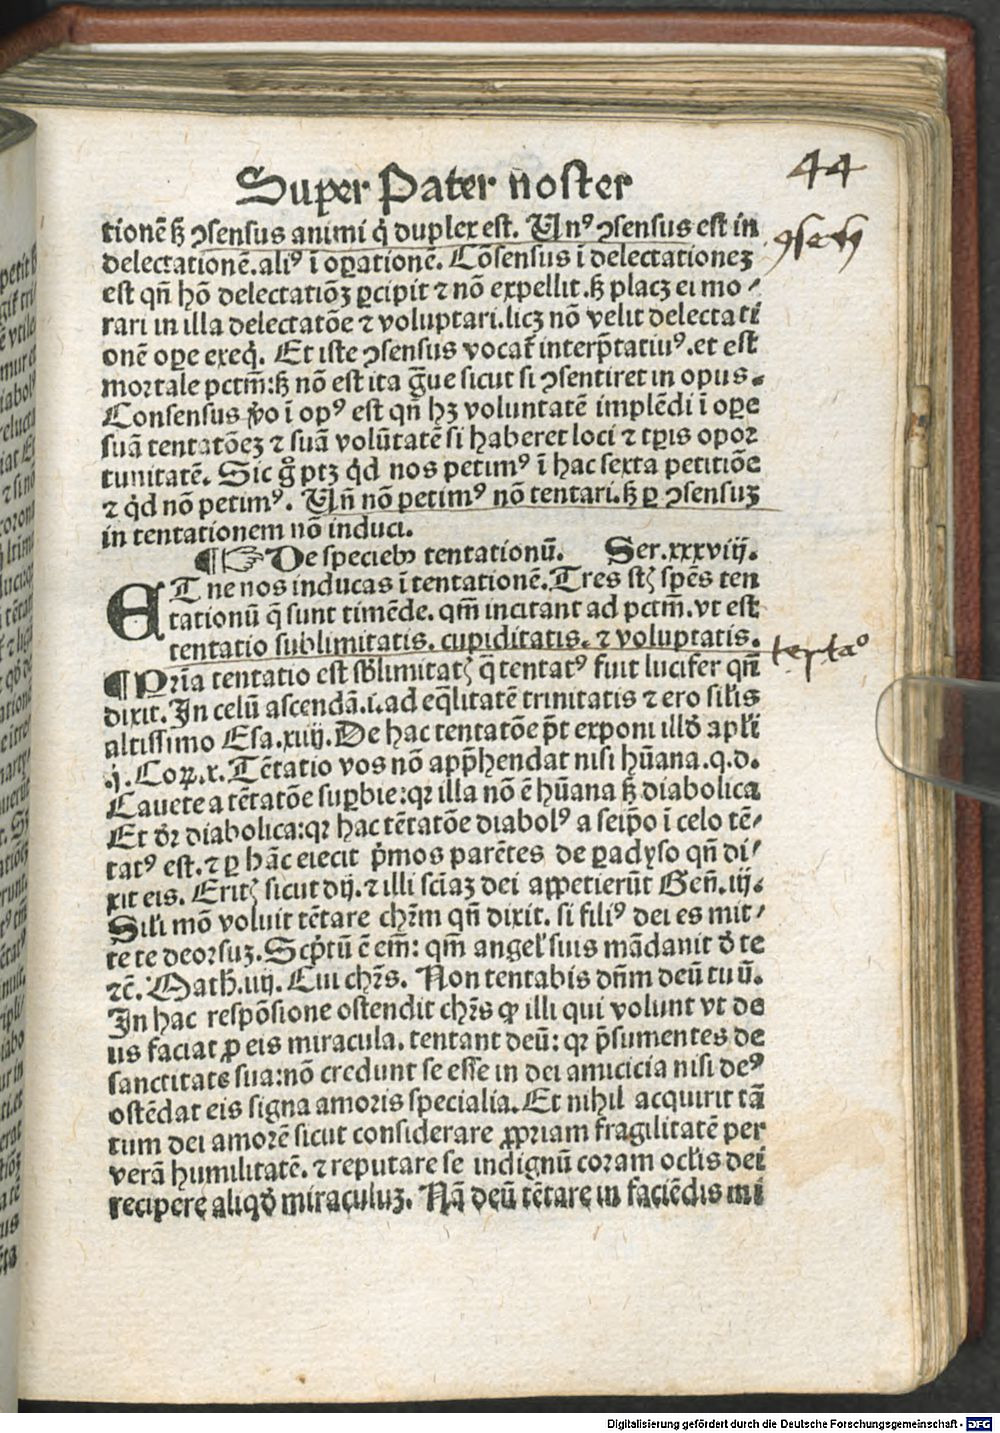 Super Pater noster
44
tionē ꝫ ꝯsensus animi q̇ duplex est. Unꝰ ꝯsensus est in
ꝯsensꝰ
delectationē. aliꝰ ī oꝑationē. Cōsensus ī delectationeꝫ
est qn̄ hō delectatiōꝫ ꝑcipit ⁊ nō expellit. ꝫ placꝫ ei mo⸗
rari in illa delectatōe ⁊ voluptari. licꝫ nō velit delectati
onē oꝑe exeq̇. Et iste ꝯsensus vocat̄ interp̄tatiuꝰ. et est
mortale pctm̄: ꝫ nō est ita ḡue sicut si ꝯsentiret in opus.
Consensus v̊o ī opꝰ est qn̄ hꝫ voluntatē implēdi ī oꝑe
suā tentatōeꝫ ⁊ suā volūtatē si haberet loci ⁊ tꝑis opor
tunitatē. Sic g̊ ptꝫ q̇d nos petimꝰ ī hac sexta petitiōe
⁊ q̇d nō petimꝰ. Un̄ nō petimꝰ nō tentari. ꝫ ꝑ ꝯsensuꝫ
in tentationem nō induci.
¶ ☞ De speciebꝰ tentationū. Ser. xxxviij.
ET ne nos inducas ī tentationē. Tres st̄ spēs ten
tationū q̄ sunt timēde. qm̄ incitant ad pctm̄. vt est
tentatio sublimitatis. cupiditatis. ⁊ voluptatis.
tentaᵒ
¶ Prīa tentatio est sb̄limitat̄ q̄ tentatꝰ fuit lucifer qn̄
dixit. In celū ascendā. i. ad eq̄litatē trinitatis ⁊ ero sil̄is
altissimo Esa. xiiij. De hac tentatōe p̄t exponi illḋ apl̄i
.j. Coꝝ. x. Tētatio vos nō app̄hendat nisi hūana. q. d.
Cauete a tētatōe suꝑbie: qꝛ illa nō ē hūana ꝫ diabolica
Et dr̄ diabolica: qꝛ hac tētatōe diabolꝰ a seip̄o ī celo tē⸗
tatꝰ est. ⁊ ꝑ hāc eiecit p̄mos parētes de ꝑadyso qn̄ di⸗
xit eis. Erit̄ sicut dij. ⁊ illi sciāꝫ dei appetierūt Gen̄. iij.
Sil̄i mō voluit tētare chr̄m qn̄ dixit. si filiꝰ dei es mit⸗
te te deorsuꝫ. Scp̄tū ē em̄: qm̄ angel̄ suis mādauit ḋ te
⁊c̄. Math̄. iiij. Cui chr̄s. Non tentabis dn̄m deū tuū.
In hac respōsione ostendit chr̄s ꝙ illi qui volunt vt de
us faciat ꝓ eis miracula. tentant deū: qꝛ p̄sumentes de
sanctitate sua: nō credunt se esse in dei amicicia nisi deꝰ
ostēdat eis signa amoris specialia. Et nihil acquirit tā
tum dei amorē sicut considerare ꝓpriam fragilitatē per
verā humilitatē. ⁊ reputare se indignū coram ocl̄is dei
recipere aliqḋ miraculuꝫ. Nā deū tētare in faciēdis mi
Digitalisierung gefördert durch die Deutsche Forschungsgemeinschaft - DFG